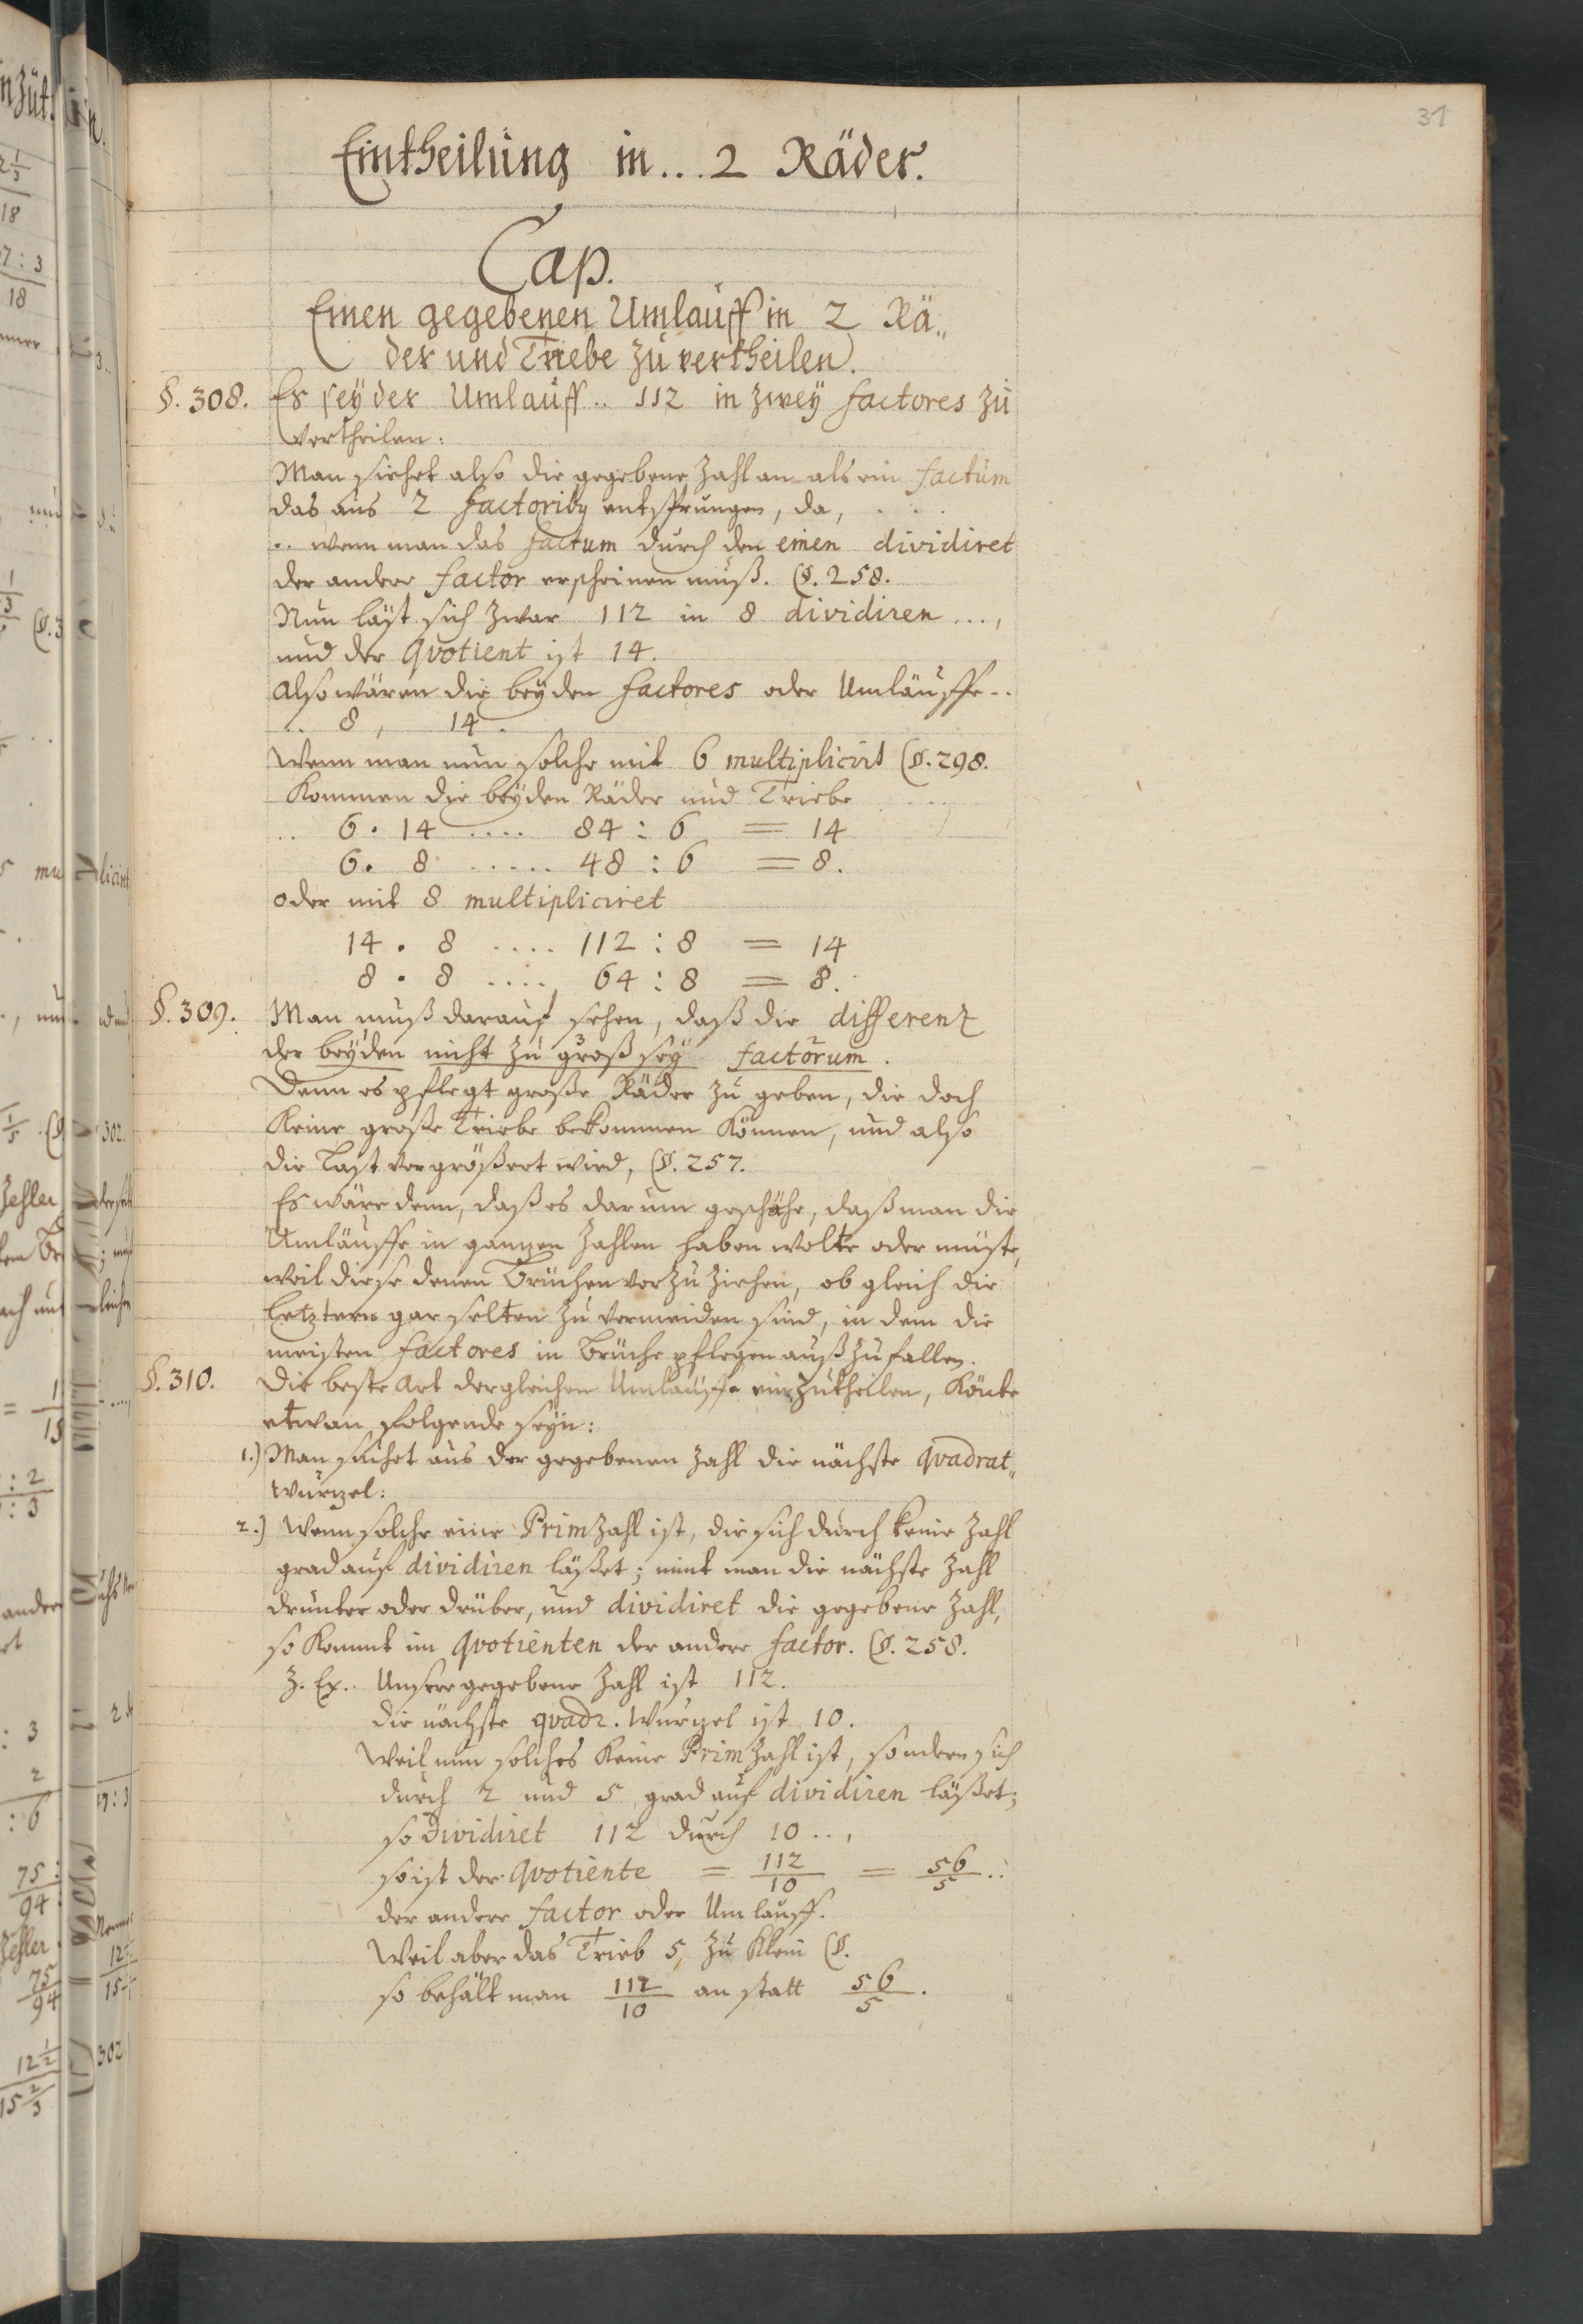 31
Eintheilung in... 2 Räder.
Cap.
Einen gegebenen Umlauff in 2 Rä„
der und Triebe zu vertheilen.
§. 308. Es sey der Umlauff.. 112 in zwey factores zu
vertheilen:
Man siehet also die gegebene Zahl an als ein factum
das aus 2 factoribq entsprungen, da, . . .
.. wenn man das factum durch den einen dividiret
der andere factor erscheinen muß. (§. 258.
Nun läst sich zwar 112 in 8 dividiren ...,
und der Qvotient ist 14.
Also wären die beyden factores oder Umläuffe..
.. 8 , 14 .
Wenn man nun solche mit 6 multiplicirt (§. 298.
Kommen die beyden Räder und Triebe ....
.. 6 . 14 .... 84 : 6 = 14
6 . 8 ..... 48 : 6 = 8.
oder mit 8 multipliciret
14 . 8 .... 112 : 8 = 14
8 . 8 ...., 64 : 8 = 8.
§. 309. Man muß darauf sehen, daß die differenz
der beyden nicht zu groß sey factorum.
Denn es pflegt große Räder zu geben, die doch
Keine große Triebe bekommen Können, und also
die Last vergrößert wird, (§. 257.
Es wäre denn, daß es darum geschähe, daß man die
Umläuffe in ganzen Zahlen haben wolte oder müste,
weil diese denen Brüchen vorzuziehen, ob gleich die
letztern gar selten zu vermeiden sind, in dem die
meisten factores in Brüche pflegen auß zu fallen.
§. 310. Die beste Art dergleichen Umläuffe einzutheilen, Könte
etwan folgende seyn:
1.) Man suchet aus der gegebenen Zahl die nächste qvadrat„
wurzel:
2.) Wenn solche eine Primzahl ist, die sich durch keine Zahl
grad auf dividiren läßet; nimt man die nächste Zahl
drunter oder drüber, und dividiret die gegebene Zahl,
so Kommt im Qvotienten der andere factor. (§. 258.
Z. Ex.. Unsere gegebene Zahl ist 112.
die nächste qvadr. wurzel ist 10.
Weil nun solches Keine Primzahl ist, sondern sich
durch 2 und 5 grad auf dividiren läßet;
so dividiret 112 durch 10 ..,
so ist der Qvotiente = 112/10 = 56/5 ..
der andere factor oder Umlauff.
Weil aber das Trieb 5, zu Klein (§.
so behält man 112/10 an statt 56/5.